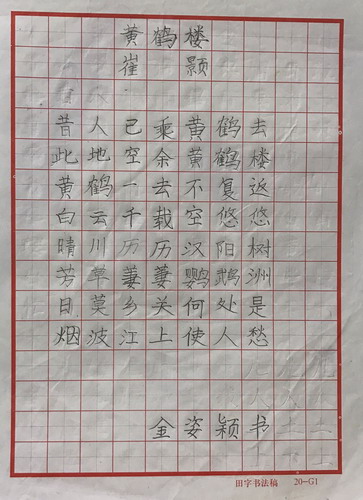 黄鹤楼
崔 颢
昔人已乘黄鹤去
此地空余黄鹤楼
黄鹤一去不复返
白云千载空悠悠
晴川历历汉阳树
芳草萋萋鹦鹉洲
日莫乡关何处是
烟波江上使人愁
金姿颖书
田字书法稿 20-G1